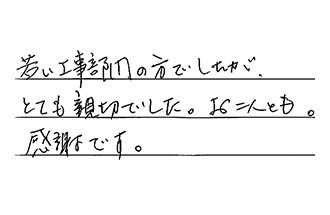 若い工事部門の方でしたが、
とても親切でした。お二人とも。
感謝です。